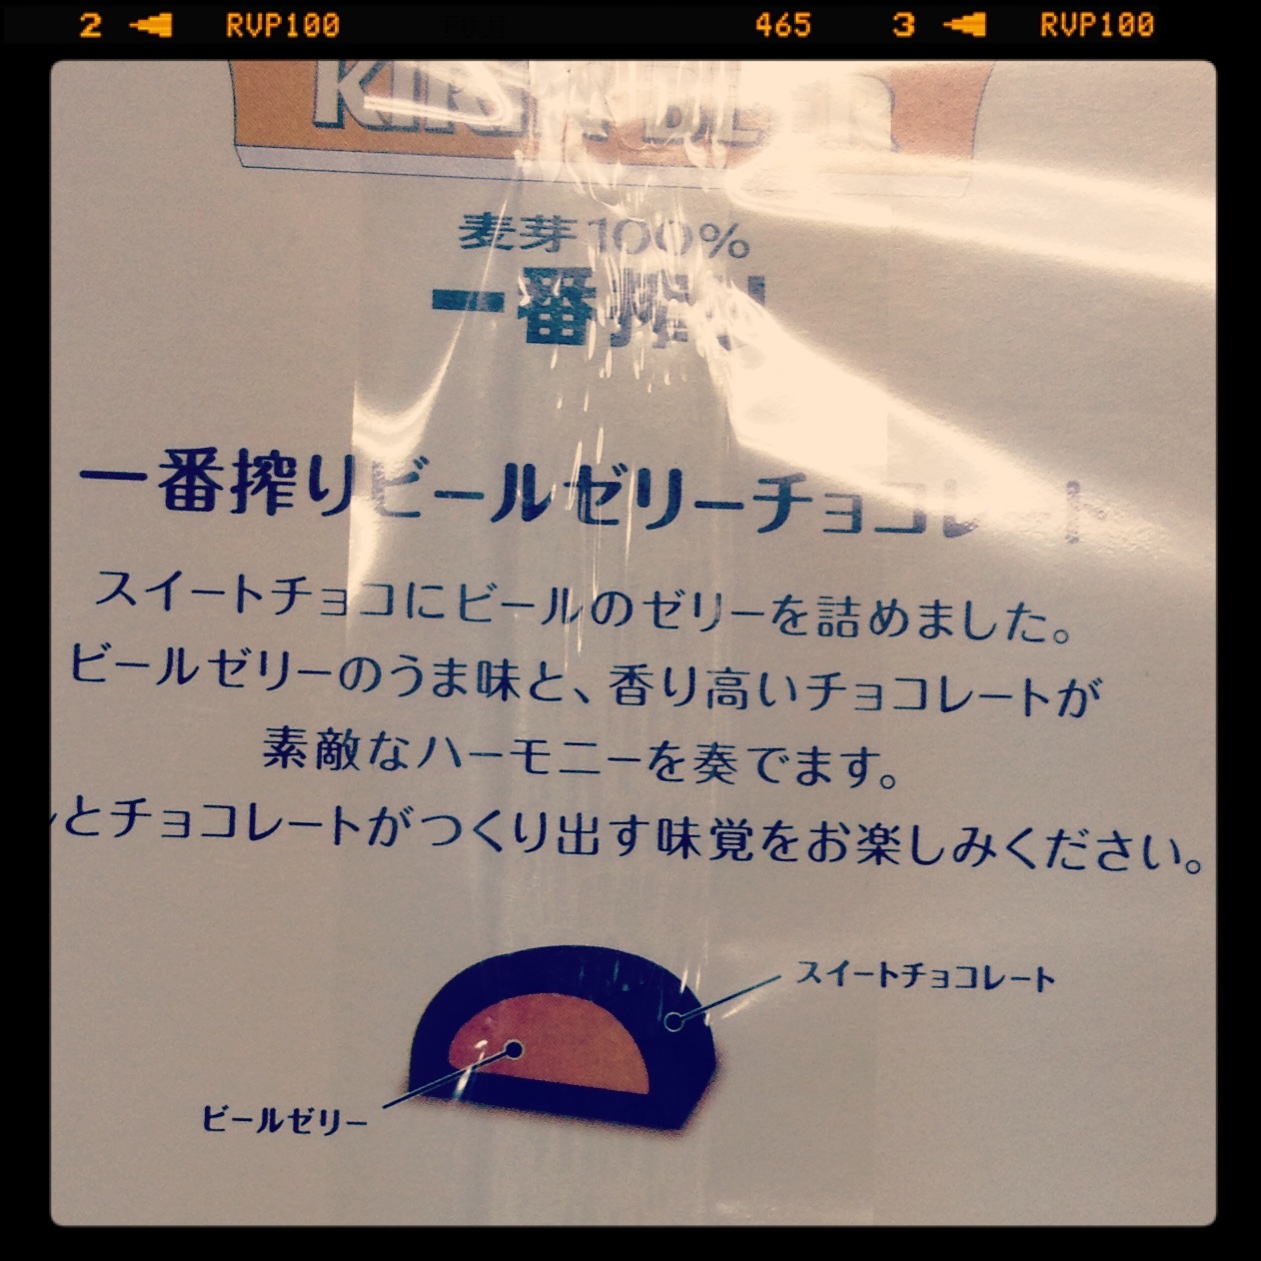 2 RVP100 465 3 RVP100
KIRIN BEER
麦芽100%
一番搾り
一番搾りビールゼリーチョコレート
スイートチョコにビールのゼリーを詰めました。
ビールゼリーのうま味と、香り高いチョコレートが
素敵なハーモニーを奏でます。
とチョコレートがつくり出す味覚をお楽しみください。
スイートチョコレート
ビールゼリー